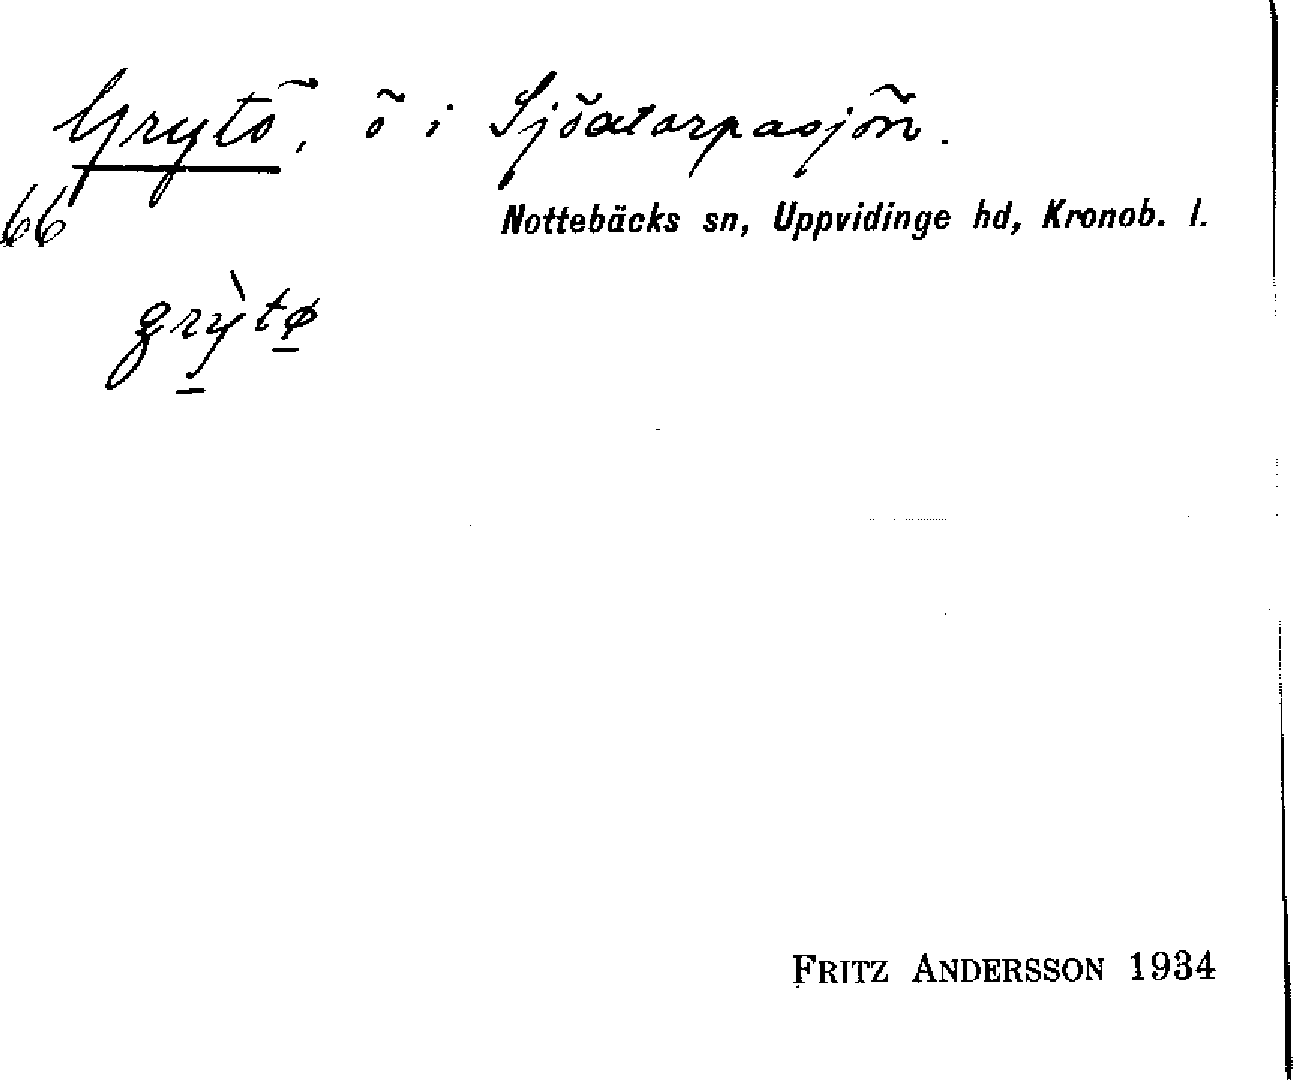 Grytö, ö i Sjöatorpasjön.
66
Nottebäcks sn, Uppvidinge hd, Kronob. l.
grỳtø
FRITZ ANDERSSON 1934